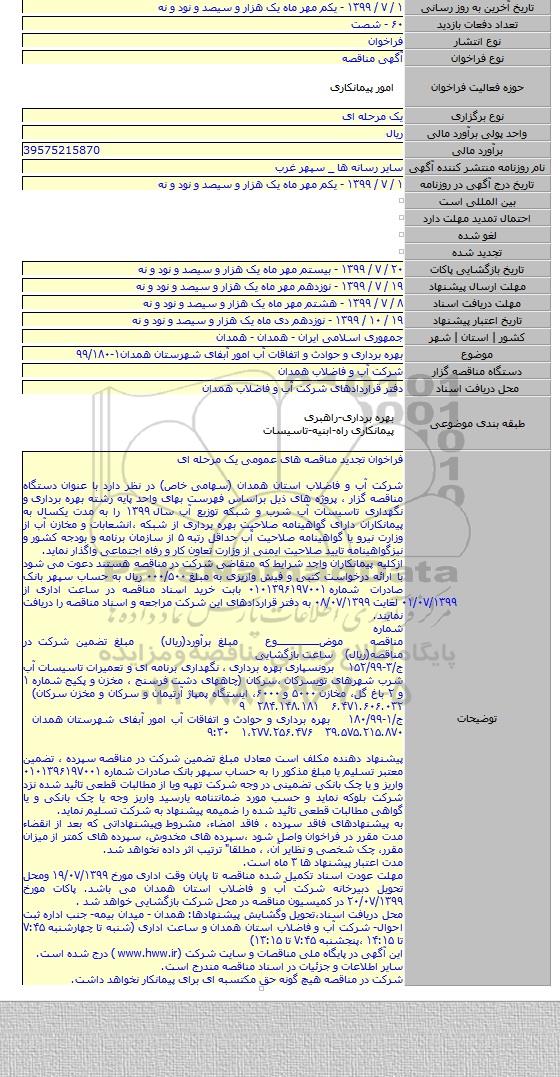 تاریخ آخرین به روز رسانی ۱ / ۷ / ۱۳۹۹ - یکم مهر ماه یک هزار و سیصد و نود و نه
تعداد دفعات بازدید ۶۰ - شصت
نوع انتشار فراخوان
نوع فراخوان آگهی مناقصه
حوزه فعالیت فراخوان امور پیمانکاری
نوع برگزاری یک مرحله ای
واحد پولی برآورد مالی ریال
برآورد مالی 39575215870
نام روزنامه منتشر کننده آگهی سایر رسانه ها _ سپهر غرب
تاریخ درج آگهی در روزنامه ۱ / ۷ / ۱۳۹۹ - یکم مهر ماه یک هزار و سیصد و نود و نه
بین المللی است
احتمال تمدید مهلت دارد
لغو شده
تجدید شده
تاریخ بازگشایی پاکات ۲۰ / ۷ / ۱۳۹۹ - بیستم مهر ماه یک هزار و سیصد و نود و نه
مهلت ارسال پیشنهاد ۱۹ / ۷ / ۱۳۹۹ - نوزدهم مهر ماه یک هزار و سیصد و نود و نه
مهلت دریافت اسناد ۸ / ۷ / ۱۳۹۹ - هشتم مهر ماه یک هزار و سیصد و نود و نه
تاریخ اعتبار پیشنهاد ۱۹ / ۱۰ / ۱۳۹۹ - نوزدهم دی ماه یک هزار و سیصد و نود و نه
کشور | استان | شهر جمهوری اسلامی ایران - همدان - همدان
موضوع بهره برداری و حوادث و اتفاقات آب امور آبفای شهرستان همدان۱-۹۹/۱۸۰
دستگاه مناقصه گزار شرکت آب و فاضلاب همدان
محل دریافت اسناد دفتر قراردادهای شرکت آب و فاضلاب همدان
طبقه بندی موضوعی بهره برداری-راهبری
پیمانکاری راه-ابنیه-تاسیسات
توضیحات
فراخوان تجدید مناقصه های عمومی یک مرحله ای
شرکت آب و فاضلاب استان همدان (سهامی خاص) در نظر دارد با عنوان دستگاه
مناقصه گزار ، پروژه های ذیل براساس فهرست بهای واحد پایه رشته بهره برداری و
نگهداری تاسیسات آب شرب و شبکه توزیع آب سال ۱۳۹۹ را به مدت یکسال به
پیمانکاران دارای گواهینامه صلاحیت بهره برداری از شبکه ،انشعابات و مخازن آب از
وزارت نیرو یا گواهینامه صلاحیت آب حداقل رتبه ۵ از سازمان برنامه و بودجه کشور و
نیزگواهینامه تایید صلاحیت ایمنی از وزارت تعاون کار و رفاه اجتماعی واگذار نماید.
ازکلیه پیمانکاران واجد شرایط که متقاضی شرکت در مناقصه هستند دعوت می شود
با ارائه درخواست کتبی و فیش واریزی به مبلغ ۰۰۰/۵۰۰ ریال به حساب سپهر بانک
صادرات شماره ۰۱۰۱۳۹۶۱۹۷۰۰۱ بابت خرید اسناد مناقصه در ساعت اداری از
۰۱/۰۷/۱۳۹۹ لغایت ۰۸/۰۷/۱۳۹۹ به دفتر قراردادهای این شرکت مراجعه و اسناد مناقصه را دریافت
نمایند.
شماره
مناقصه موضـــــوع مبلغ برآورد(ریال) مبلغ تضمین شرکت در
مناقصه(ریال) ساعت بازگشایی
ج/۳-۱۵۲/۹۹ برونسپاری بهره برداری ، نگهداری برنامه ای و تعمیرات تاسیسات آب
شرب شهرهای تویسرکان ،سرکان (چاههای دشت فرسنج ، مخزن و پکیج شماره ۱
و ۲ باغ گل، مخازن ۵۰۰۰ و ۶۰۰۰، ایستگاه پمپاژ آرتیمان و سرکان و مخزن سرکان)
۶.۴۷۱.۶۰۶.۰۳۲ ۲۸۴.۱۴۸.۱۸۱ ۹
ج/۱-۱۸۰/۹۹ بهره برداری و حوادث و اتفاقات آب امور آبفای شهرستان همدان
۳۹.۵۷۵.۲۱۵.۸۷۰ ۱.۲۷۷.۲۵۶.۴۷۶ ۹:۳۰
پیشنهاد دهنده مکلف است معادل مبلغ تضمین شرکت در مناقصه سپرده ، تضمین
معتبر تسلیم یا مبلغ مذکور را به حساب سپهر بانک صادرات شماره ۰۱۰۱۳۹۶۱۹۷۰۰۱
واریز و یا چک بانکی تضمینی در وجه شرکت تهیه ویا از مطالبات قطعی تائید شده نزد
شرکت بلوکه نماید و حسب مورد ضمانتنامه یارسید واریز وجه یا چک بانکی و یا
گواهی مطالبات قطعی تائید شده را ضمیمه پیشنهاد به شرکت تسلیم نماید.
به پیشنهادهای فاقد سپرده ، فاقد امضاء، مشروط وپیشنهاداتی که بعد از انقضاء
مدت مقرر در فراخوان واصل شود ،سپرده های مخدوش، سپرده های کمتر از میزان
مقرر، چک شخصی و نظایر آن، ، مطلقا" ترتیب اثر داده نخواهد شد.
مدت اعتبار پیشنهاد ها ۳ ماه است.
مهلت عودت اسناد تکمیل شده مناقصه تا پایان وقت اداری مورخ ۱۹/۰۷/۱۳۹۹ ومحل
تحویل دبیرخانه شرکت آب و فاضلاب استان همدان می باشد. پاکات مورخ
۲۰/۰۷/۱۳۹۹ در کمیسیون مناقصه در محل شرکت بازگشایی خواهد شد .
محل دریافت اسناد،تحویل وگشایش پیشنهادها: همدان - میدان بیمه- جنب اداره ثبت
احوال- شرکت آب و فاضلاب استان همدان و ساعت اداری (شنبه تا چهارشنبه ۷:۴۵
تا ۱۴:۱۵ ،پنجشنبه ۷:۴۵ تا ۱۳:۱۵)
این آگهی در پایگاه ملی مناقصات و سایت شرکت (www.hww.ir) درج شده است.
سایر اطلاعات و جزئیات در اسناد مناقصه مندرج است.
شرکت در مناقصه هیچ گونه حق مکتسبه ای برای پیمانکار نخواهد داشت.